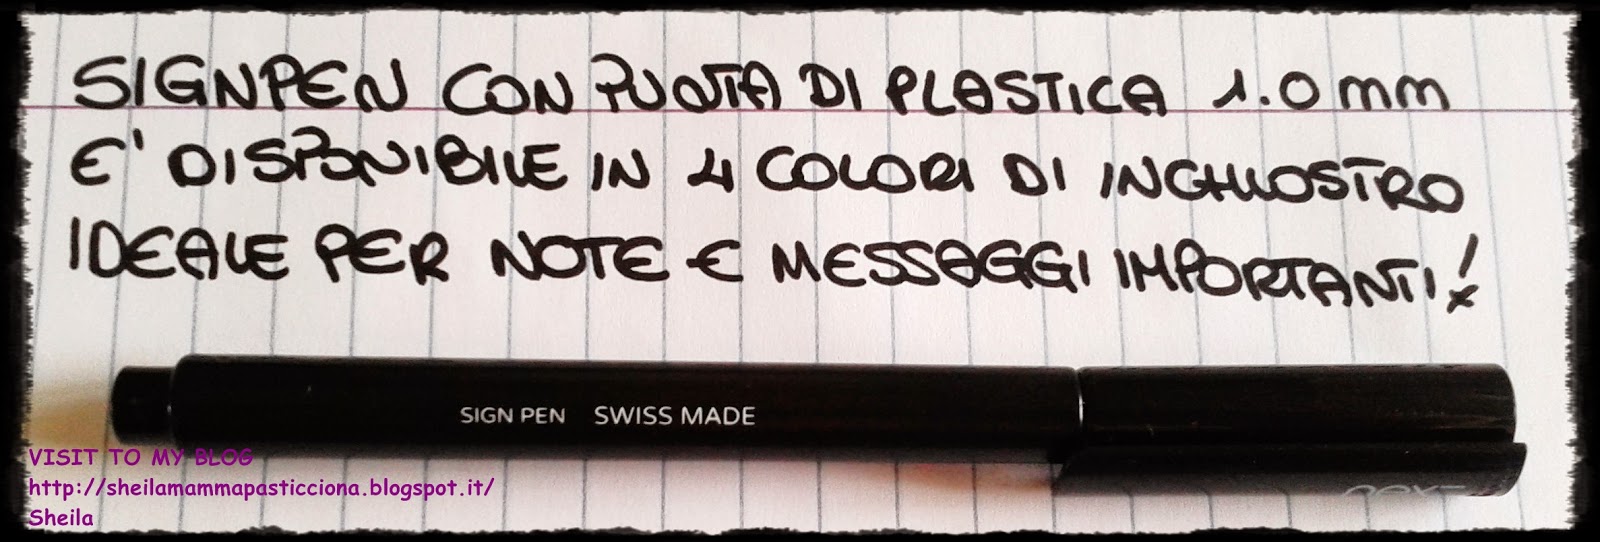 SIGNPEN CON PUNTA DI PLASTICA 1.0 mm
E' DISPONIBILE IN 4 COLORI DI INCHIOSTRO
IDEALE PER NOTE E MESSAGGI IMPORTANTI!
SIGN PEN SWISS MADE
VISIT TO MY BLOG
http://sheilamammapasticciona.blogspot.it/
Sheila